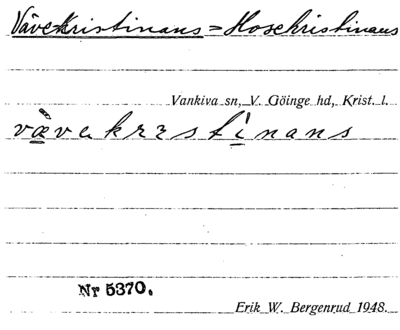 Vävekristinans = Hosekristinans
Vankiva sn, V. Göinge hd, Krist. l.
vävekrestinans
Nr 5370.
Erik W. Bergenrud 1948.